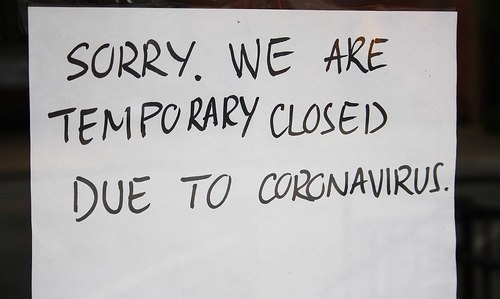 SORRY. WE ARE
TEMPORARY CLOSED
DUE TO CORONAVIRUS.